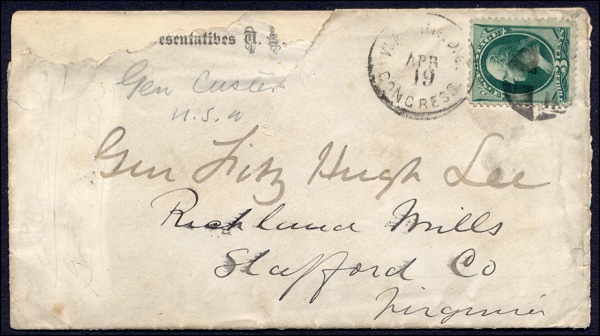 esentatives U. S.
APR
19
CONGRESS
3 CENTS
Gen Custer
U.S.A
Gen Fitz Hugh Lee
Richland Mills
Stafford Co
Virginia